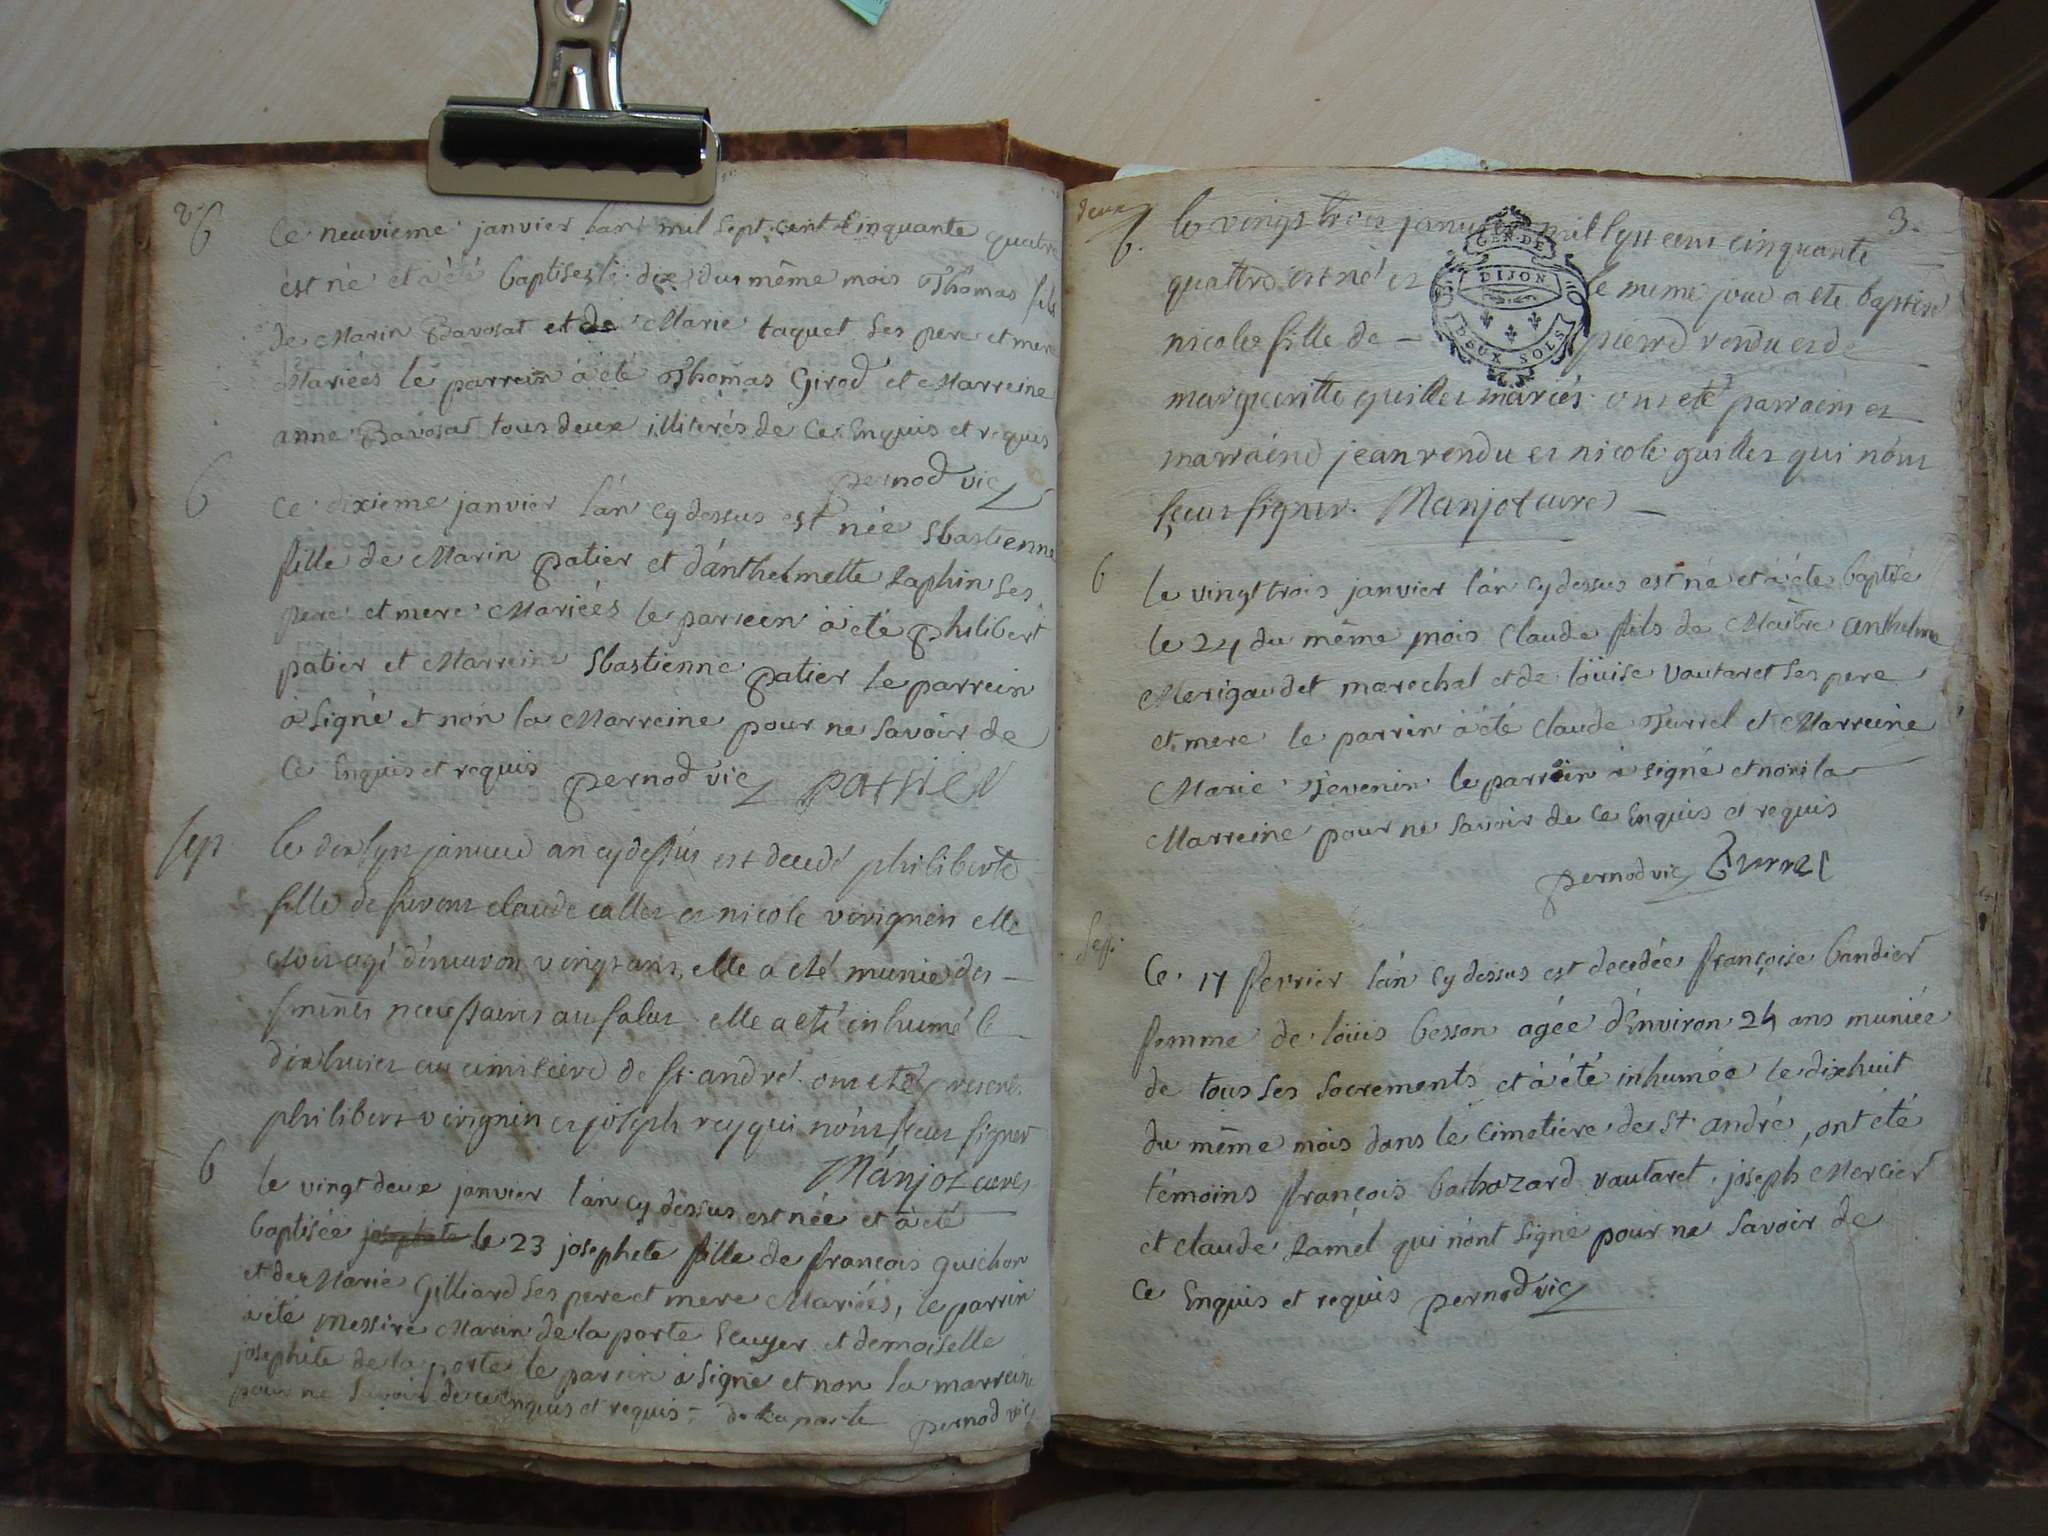 2
b
Ce neuvieme janvier lan mil sept cent cinquante quatre
est né et a été baptisé le dix du même mois Thomas fils
de Marin Bavosat et de Marie taquet ses pere et mere
Mariées le parrein à été Thomas Girod et Marreine
anne Bavosat tous deux illiterés de ce Enquis et requis
pernod vic
b
Ce dixieme janvier lán cy dessus est née Sbastienne
fille de Marin patier et dánthelmette Laphin ses
pere et mere Mariées le parrein à été philibert
patier et Marreine Sbastienne patier le parrein
à signé et non la Marreine pour ne savoir de
Ce Enquis et requis pernod vic patier
sep
le dixsept janvier an cydessus est decedé philiberte
fille de furent claude callet et nicole verignin elle
etoit agé d'environ vingt ans, elle a eté munie des
sacremts necessaires au salut elle a eté inhumé le
dixhuit au cimetiere de st. andré ont eté presents
philibert verignin et joseph rey qui n'ont sceut signer
Manjot curé
b
le vingt deux janvier lán cy dessus est née et à été
baptisée josephete le 23 josephete fille de françois guichon
et de Marie Gilliard ses pere et mere Mariées, le parrin
à été Messire Marin de la porte Ecuyer et demoiselle
josephete de la porte le parrein à signé et non la marreine
pour ne savoir de ce enquis et requis de la porte pernod vic
deux
3.
b.
le vingt trois janvier mil sept cent cinquante
quattre est né et le meme jour a eté baptisé
nicole fille de pierre rendu et de
margueritte guillet mariés ont eté parrain et
marraine jean rendu et nicole guillet qui n'ont
sceut signer. Manjot curé
GEN. DE
DIJON
DEUX SOLS
b
le vingt trois janvier lán cy dessus est né et à été baptisé
le 24 du même mois Claude fils de Maitre anthelme
Merigaudet marechal et de loüise Vautaret ses pere
et mere le parrin à été Claude Turrel et Marreine
Marie Tevenin le parrein à signé et non la
Marreine pour ne savoir de ce Enquis et requis
pernod vic Turrel
sep.
Ce 17 fevrier lán cy dessus est decedée françoise bandier
femme de loüis besson agée dénviron 24 ans muniée
de tous ses sacrements et à été inhumée le dixhuit
du même mois dans le cimetiere de St andré, ont été
témoins françois balthazard vautaret joseph Mercier
et claude Lamel qui n'ont signé pour ne savoir de
ce Enquis et requis pernod vic